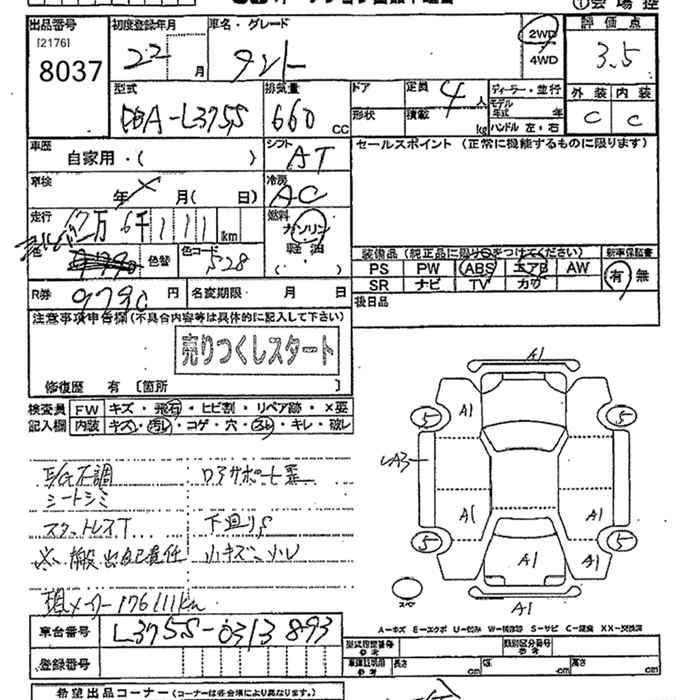 出品番号 初度登録年月 車名・グレード 2WD 評価点
[2176] 4WD
8037 22 月 タント 3.5
型式 排気量 ドア 定員 4人 ディーラー・並行 外装 内装
DBA-L375S 660 cc 形状 積載 kg モデル年式 年 C C
ハンドル 左・右
車歴 シフト セールスポイント(正常に機能するものに限ります)
自家用・( ) AT
車検 冷房
年 月( 日) AC
走行 燃料
12万6千111km ガソリン
色 色替 色コード 軽油
S28 ( ・ )
装備品(純正品に限り○をつけてください) 新車保証書
PS PW ABS エアB AW 有 無
SR ナビ TV カワ
R券 9790円 名変期限・ 月 日 後日品
注意事項申告欄(不具合内容等は具体的に記入して下さい)
売りつくしスタート
修復歴 有 [箇所 ]
検査員 FW キズ・飛石・ヒビ割・リペア跡・×要
記入欄 内装 キズ・汚レ・コゲ・穴・スレ・キレ・破レ
A1
5 A1 5
E/G不調 ロアサポート
シートシミ
A1 A1
スタットレスT 下廻りS
搬出自己責任 小キズ・
5 A1 A1 5
現メーター176111km
スペア A1
A-キズ E-エクボ U-凹み S-サビ C-腐食 XX-交換済
車台番号 L375S-0313893
型式指定番号 参考 類別区分番号 参考
登録番号 参考 長さ cm 幅 cm 高さ cm
希望出品コーナー(コーナーは各会場により異なります。)